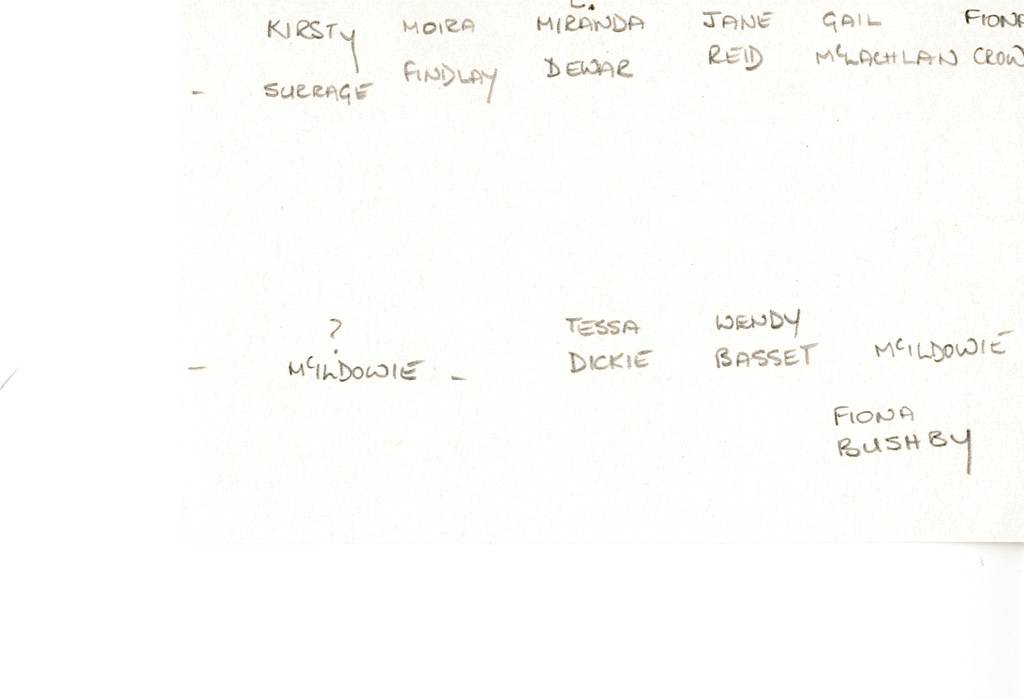 KIRSTY MOIRA MIRANDA JANE GAIL FIONA
- SURRAGE FINDLAY DEWAR REID McLACHLAN CROW
? TESSA WENDY
- McILDOWIE - DICKIE BASSET McILDOWIE
FIONA
BUSHBY